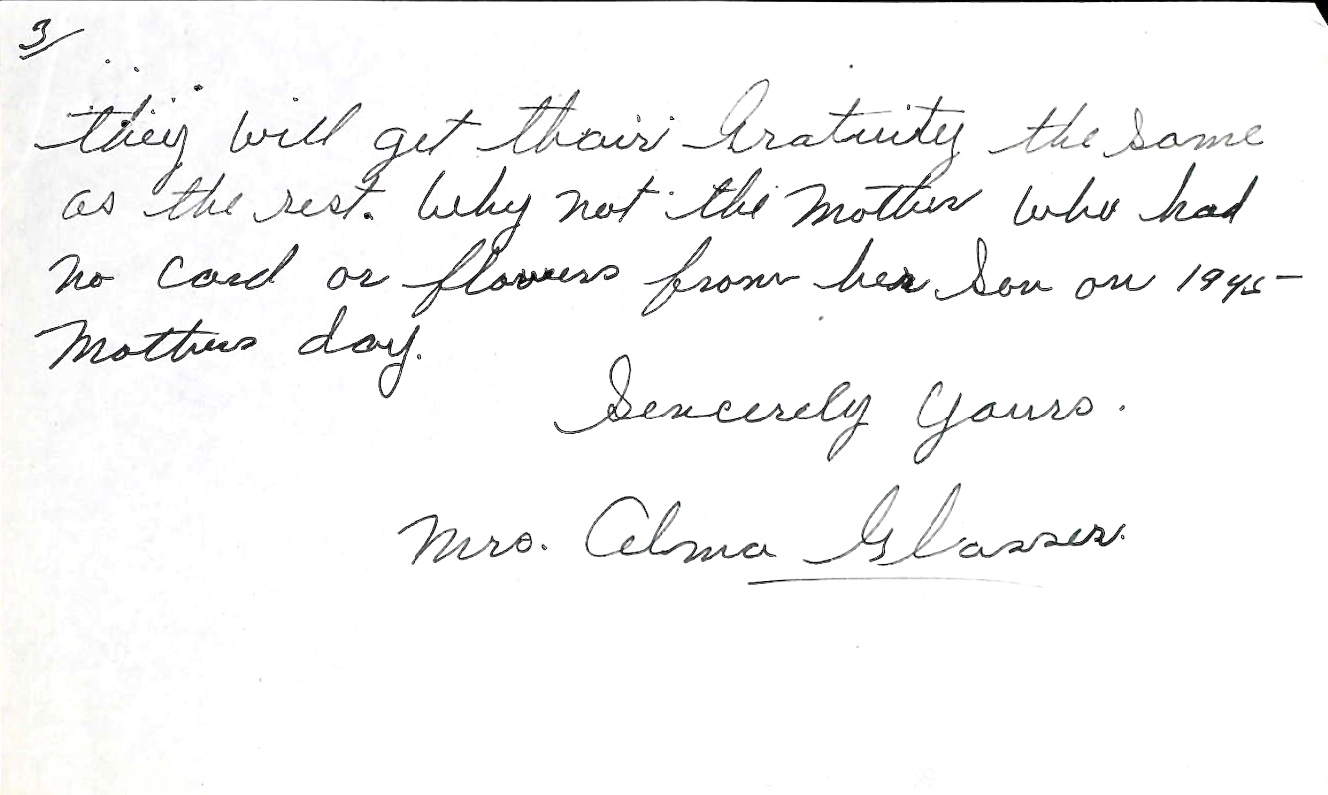 3/
they will get thair Gratuity the same
as the rest. Why not the Mother who had
no card or flowers from her Son on 1945
Mothers day.
Sencerely Yours.
Mrs. Alma Glasser.